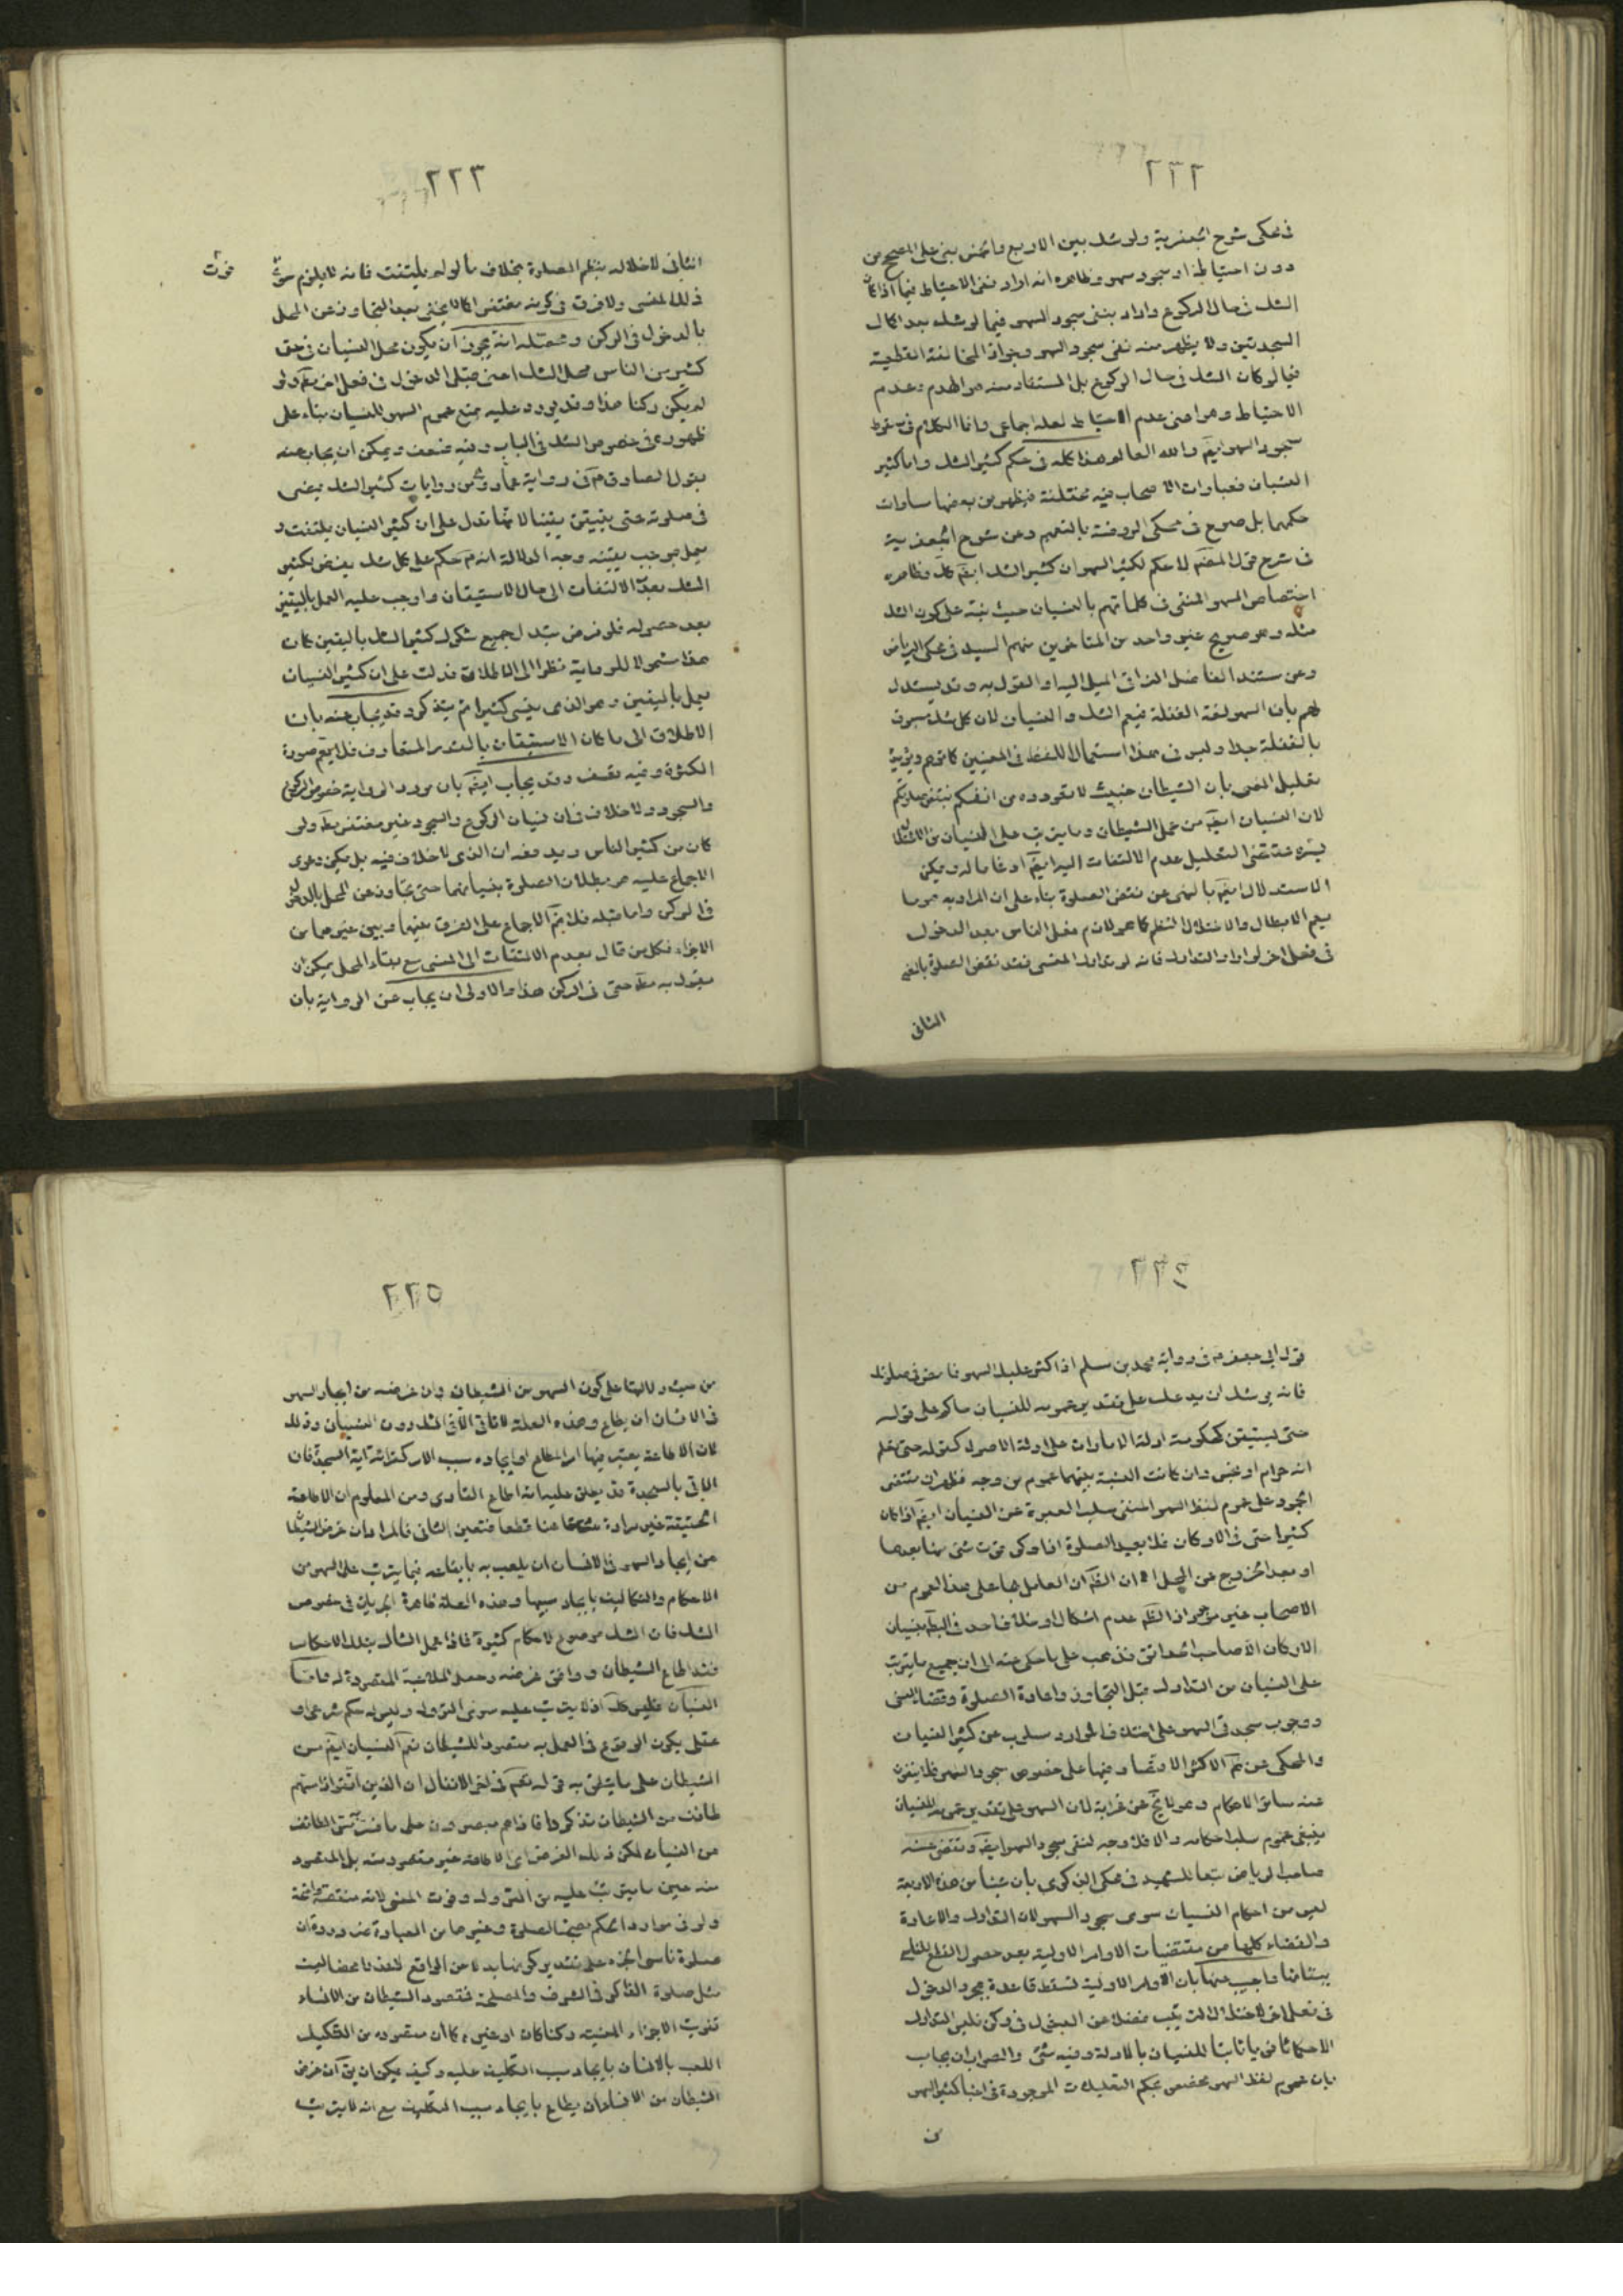 ٢٢٢
فی محکی شرح الجعفریة ولو شك بین الاربع والخمس بنی علی المصحح من
دون احتیاط او سجود سهو وظاهره انه اراد نفی الاحتیاط فیما اذا کان
الشك فی حال الرکوع واراد بنفی سجود السهو فیما لو شك بعد اکمال
السجدتین ولا یظهر منه نفی سجود السهو وجواز المخالفة القطعیة
فیما لو کان الشك فی حال الرکوع بل المستفاد منه هو الهدم وعدم
الاحتیاط وهو اعنی عدم الاحتیاط لعله اجماعی وانما الکلام فی سقوط
سجود السهو ایضم والله العالم هذا کله فی حکم کثیر الشك واما کثیر
النسیان فعبارات الاصحاب فیه مختلفة فیظهر من بعضها مساوات
حکمهما بل صرح فی محکی الروضة بالتعمیم وعن شرح الجعفریة
فی شرح قول المصنم لا حکم لکثیر السهو ان کثیر الشك ایضم کك وظاهره
اختصاص السهو المنفی فی کلماتهم بالنسیان حیث نبه علی کون الشك
مثله وهو صریح غیر واحد من المتاخرین منهم السید فی محکی الریاض
وعن مستند الفاضل النراقی المیل الیه او القول به وقد یستدل
لهم بان السهو لغة الغفلة فیعم الشك والنسیان لان کل شك مسبوق
بالغفلة جدا ولیس فی هذا استعمال اللفظ فی المعنیین کما توهم ویؤیده
تعلیل المضی بان الشیطان خبیث لا تعودوه من انفسکم بنقض صلوتکم
لان النسیان ایضم من عمل الشیطان وما یترتب علی النسیان من
فمقتضی التعلیل عدم الالتفات الیه ایضم ارغاما له ویمکن
الاستدلال ایضم بالنهی عن نقض الصلوة بناء علی ان المراد به هو ما
یعم الابطال والاختلال النظم کما هو لازم فعل الناسی بعد الدخول
فی فعل اخر لو اراد التدارك فانه لو تدارك المنسی فقد نقض الصلوة بالمعنی
الثانی
٢٢٣
الثانی لاخلاله بنظم الصلوة بخلاف ما لو لم یلتفت فانه لا یلزم سوی
فوت
ذلك المنسی ولا فرق فی کونه مغتفرا کما لا یخفی بعد التجاوز عن المحل
بالدخول فی الرکن وقبله انه یجوز ان یکون محل النسیان فی حق
کثیر من الناس محل الشك اعنی قبل الدخول فی فعل اخر ولو
لم یکن رکنا هذا وقد یورد علیه بمنع عموم السهو للنسیان بناء علی
ظهوره فی خصوص الشك فی الباب وفیه ضعف ویمکن ان یجاب عنه
بقول الصادق م فی روایة عمار وهی من روایات کثیر الشك یمضی
فی صلوته حتی یستیقن یقینا لانها تدل علی ان کثیر النسیان یلتفت و
یعمل بموجب یقینه وجه الدلالة انه م حکم علی کل شك یعرض لکثیر
الشك بعدم الالتفات الی حال الاستیقان واوجب علیه العمل بالیقین
بعد حصوله فلو فرض تبدل جمیع شکوك کثیر الشك بالیقین کان
هذا مشمولا للروایة نظرا الی الاطلاق فدلت علی ان کثیر النسیان
یعمل بالیقین وهو الذی ینسی کثیرا ثم یتذکر وقد یجاب عنه بان
الاطلاق الی ما کان الاستیقان بالقدر المتعارف فلا یعم صورة
الکثرة وفیه تعسف وقد یجاب ایضم بان مورد الروایة خصوص الرکوع
والسجود ولا خلاف فی ان نسیان الرکوع والسجود غیر مغتفر مطم ولو
کان من کثیر الناس ویدفعه ان الذی لا خلاف فیه بل یمکن دعوی
الاجماع علیه هو بطلان الصلوة بنسیانهما حتی یتجاوز عن المحل بالدخول
فی الرکن واما قبله فلا یتم الاجماع علی الفرق بینهما وبین غیرهما من
الاجزاء فکل من قال بعدم الالتفات الی المنسی مع بقاء المحل یمکن ان
یقول به مطم حتی فی الرکن هذا والاولی ان یجاب عن الروایة بان
٢٢٤
قول ابی جعفر م فی روایة محمد بن مسلم اذا کثر علیك السهو فامض فی صلوتك
فانه یوشك ان یدعك علی تقدیر عمومه للنسیان حاکم علی قوله
حتی یستیقن کحکومة ادلة الامارات علی ادلة الاصول کقوله حتی تعلم
انه حرام او نجس وان کانت النسبة بینهما عموم من وجه فظهر ان مقتضی
الجمود علی عموم لفظ السهو المنفی سلب العبرة عن النسیان ایضم اذا کان
کثیرا حتی فی الارکان فلا یعید الصلوة اذا ذکر فوت شئ منها بعدها
او بعد الخروج عن المحل الا ان الظم ان العامل بها علی هذا العموم من
الاصحاب غیر موجود اذ الظم عدم اشکال او خلاف احد فی البطم بنسیان
الارکان الا صاحب الحدائق فذهب علی ما حکی عنه الی ان جمیع ما یترتب
علی النسیان من التدارك قبل التجاوز واعادة الصلوة وقضاء المنسی
ووجوب سجدتی السهو علی اختلاف الموارد مسلوب عن کثیر النسیان
والمحکی عن ثم الاکثر الاقتصار فیها علی خصوص سجود السهو فلا ینفون
عنه سائر الاحکام وهو لا یخ عن غرابة لان السهو علی تقدیر عمومه للنسیان
ینبغی عموم سلب احکامه والا فلا وجه لنفی سجود السهو ایضم ونقض عنه
صاحب الریاض تبعا للشهید فی محکی الذکری بان شیئا من هذه الاربعة
لیس من احکام النسیان سوی سجود السهو لان التدارك والاعادة
والقضاء کلها من مقتضیات الاوامر الاولیة بعد حصول القطع
ببقائها واجیب عنها بان الاوامر الاولیة تسقط قاعدة بمجرد الدخول
فی فعل اخر لاختلال الترتیب فضلا عن الدخول فی رکن فلیس التدارك
الا حکما ثانویا ثابتا للنسیان بالادلة وفیه شئ والصواب ان یجاب
بان عموم لفظ السهو مخصص بحکم التعلیلات الموجودة فی اخبار کثیر السهو
من
٢٢٥
من حیث دلالتها علی کون السهو من الشیطان وان غرضه من ایجاد السهو
فی الانسان ان یطاع وهذه العلة لا تاتی الا فی الشك دون النسیان وذلك
لان الاطاعة یعتبر فیها امر المطاع او ایجاده سبب الامر کقرائة ایة السجدة فان
الاتی بالسجدة قد یطلق علیه انه اطاع القاری ومن المعلوم ان الاطاعة
الحقیقة غیر مرادة هنا قطعا فتعین الثانی فالمراد ان غرض الشیطان
من ایجاد السهو فی الانسان ان یلعب به بایقاعه فیما یترتب علی السهو من
الاحکام والتکالیف بایجاد سببها وهذه العلة ظاهرة الجریان فی خصوص
الشك فان الشك موضوع لاحکام کثیرة فاذا عمل الشاك بتلك الاحکام
فقد اطاع الشیطان ووافق غرضه وحصل الملاعبة المقصودة له واما
النسیان فلیس کك اذ لا یترتب علیه سوی الترك ولیس له حکم شرعی او
عقلی یکون الوقوع فی العمل به مقصودا للشیطان نعم النسیان ایضم من
الشیطان علی ما یدل به قوله تعم فی اخر الانفال ان الذین اتقوا اذا مسهم
طائف من الشیطان تذکروا فاذا هم مبصرون علی ما فسر الطائف
من النسیان لکن ذلك الغرض ای الاطاعة غیر مقصود منه بل المقصود
منه عین ما یترتب علیه من الترك وفوت المنسی لانه منقصة واضحة
ولو فی موارد الحکم بصحة الصلوة وغیرها من العبادة عنده ضرورة ان
صلوة ناسی الجزء علی تقدیر کونها بدلا عن الواقع لفقدها بعضا لیست
مثل صلوة الذاکر فی الشرف والمصلحة فمقصود الشیطان من الانساء
تفویت الاجزاء المنسیة رکنا کان او غیره کما ان مقصوده من التشکیك
اللعب بالانسان بایجاد سبب التکلیف علیه وکیف یمکن ان یقم ان غرض
الشیطان من الانساء ان یطاع بایجاد سبب التکلیف مع انه لا یترتب